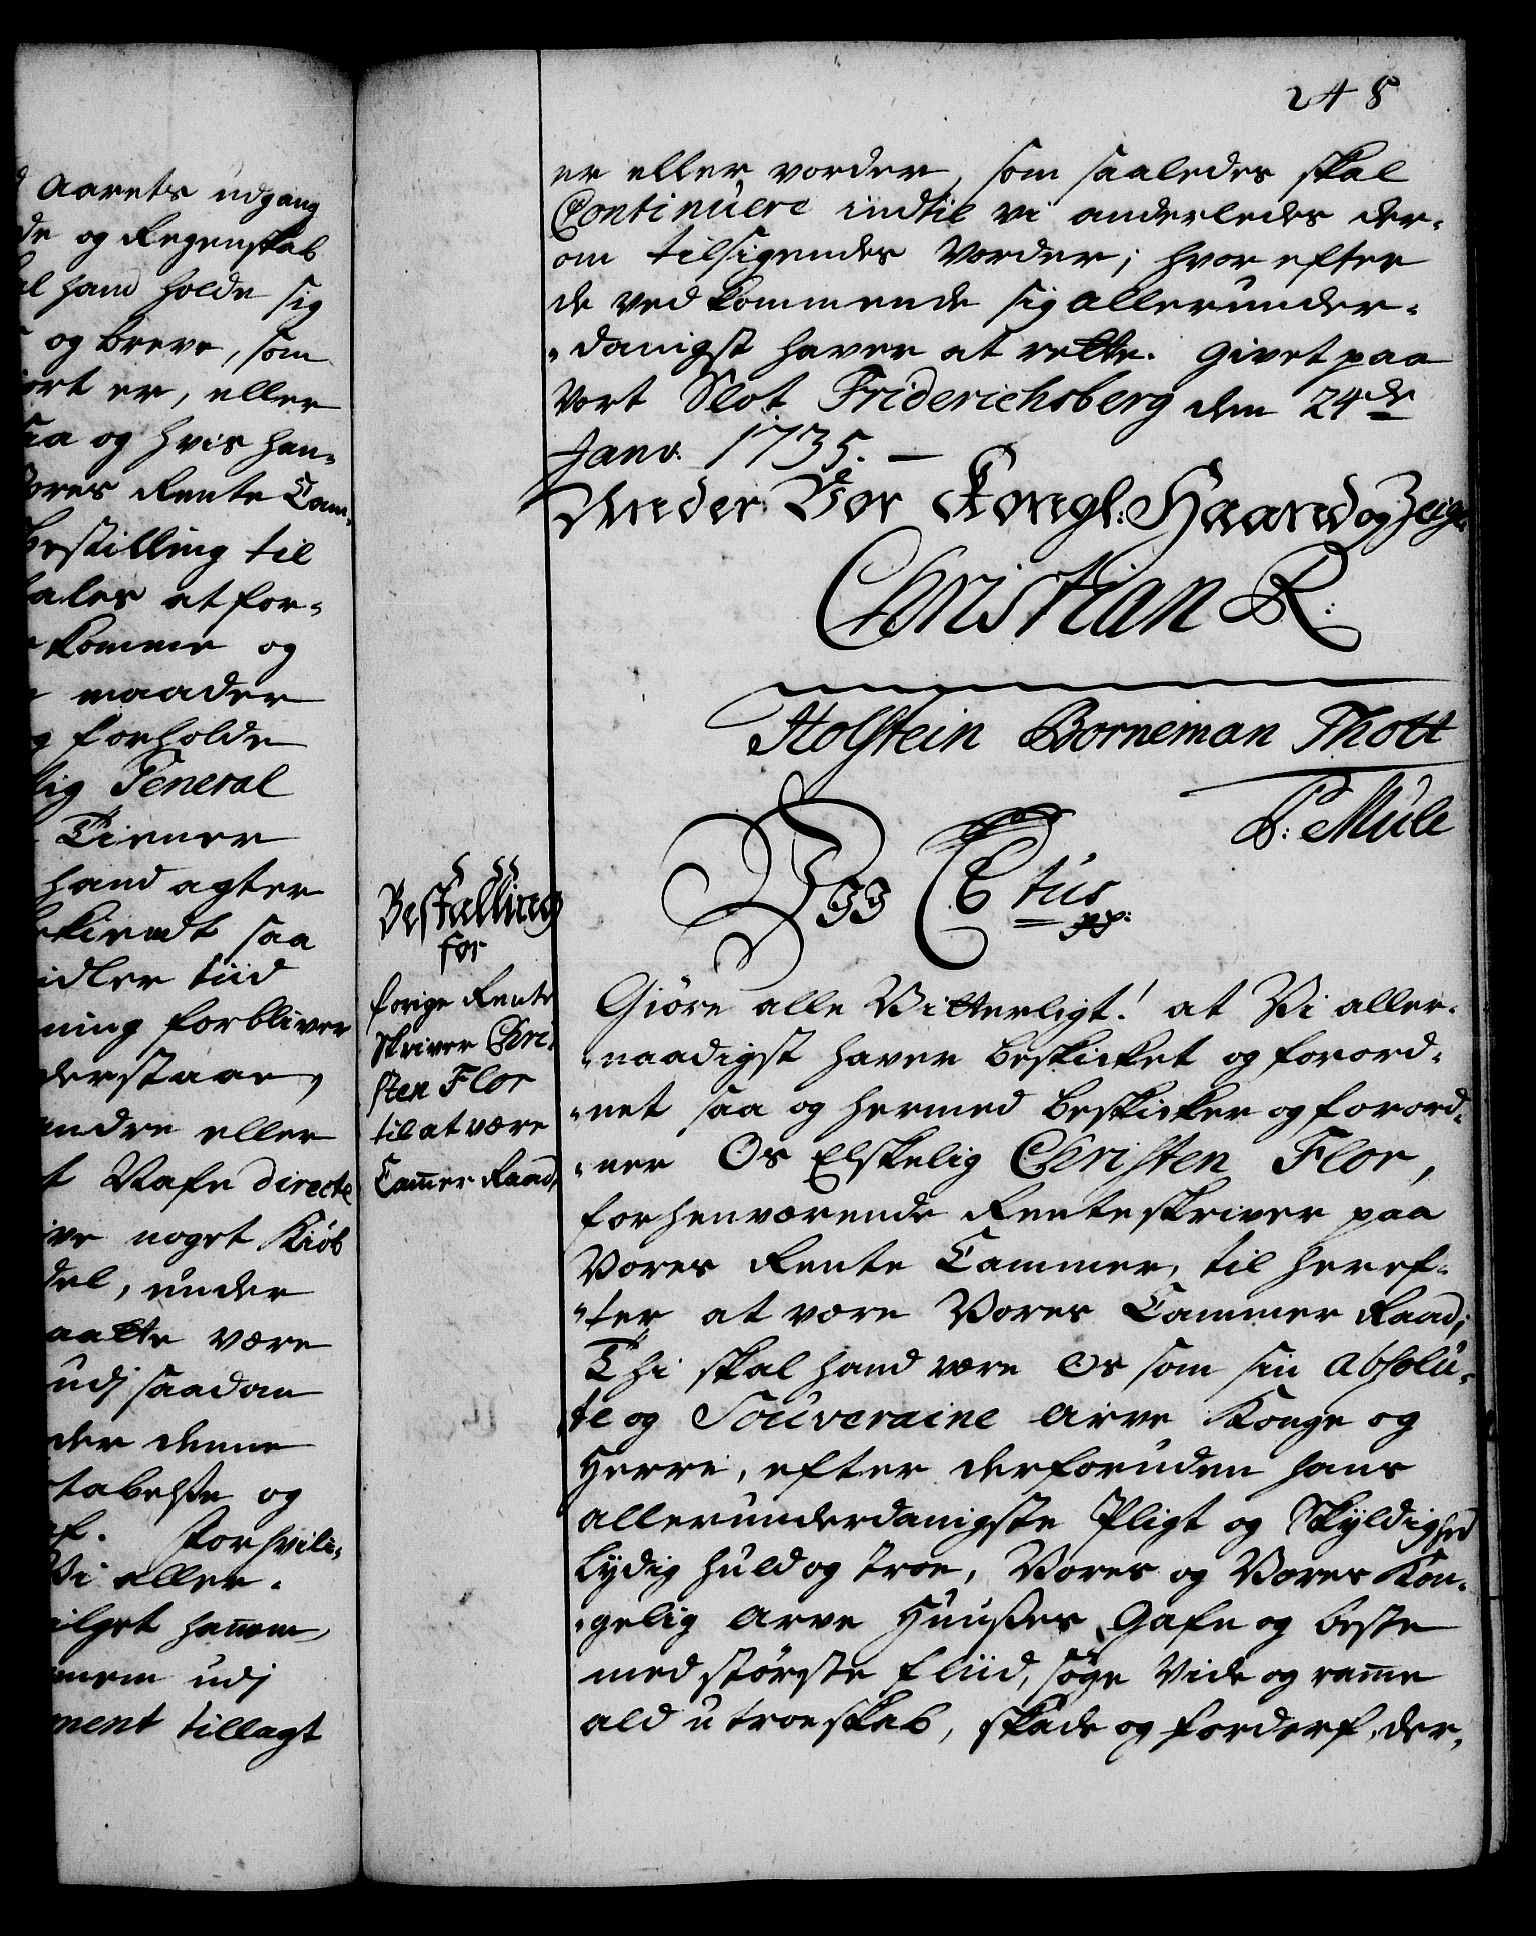 Aarets udgang
de og Regenskab
hand holde sig
og breve, som
er, eller
og hvis han-
Vores Rente Cam-
bestilling til
at for-
komme og
maader
forholde
General
Tiener
hand agter
saa
tiid
forbliver
derstaae,
andre eller
Nafn directe
noget Kiøb
under
være
udj saadan
der denne
og
Forhvili-
Vi aller-
hannem
udj
ment tillagt
248
er eller vorder, som saaledes skal
Continuere indtil vi anderledes der-
om tilsigendes vorder; hvorefter
de vedkommende sig allerunder-
-danigst haver at rette. Givet paa
Vort Slot Friderichsberg den 24de
Janv. 1735. –
Under Vor Kongl: Haand og Zeigl.
Christian R.
Holstein Borneman Thott
P: Mule
Bestalling
for
forige Rente
skriver Chri-
sten Flor
til at være
Cammer Raad,
Vii C6tus
pp:
Giøre alle Vitterligt! at Vi aller-
-naadigst haver beskicket og forord-
-net saa og hermed beskicker og forord-
-ner Os Elskelig Christen Flor,
forhenværende Renteskriver paa
Vores Rente Cammer, til heref-
-ter at være Vores Cammer Raad;
Thi skal hand være Os som sin absolu-
te og Souveraine Arve Konge og
Herre, efter derforuden hans
allerunderdanigste Pligt og Skyldighed
lydig huld og troe, Vores og Vores Kon-
-gelig Arve Huusses Gafn og beste
med største fliid, søge Vide og ramme
ald utroeskab, skade og forderf, der-